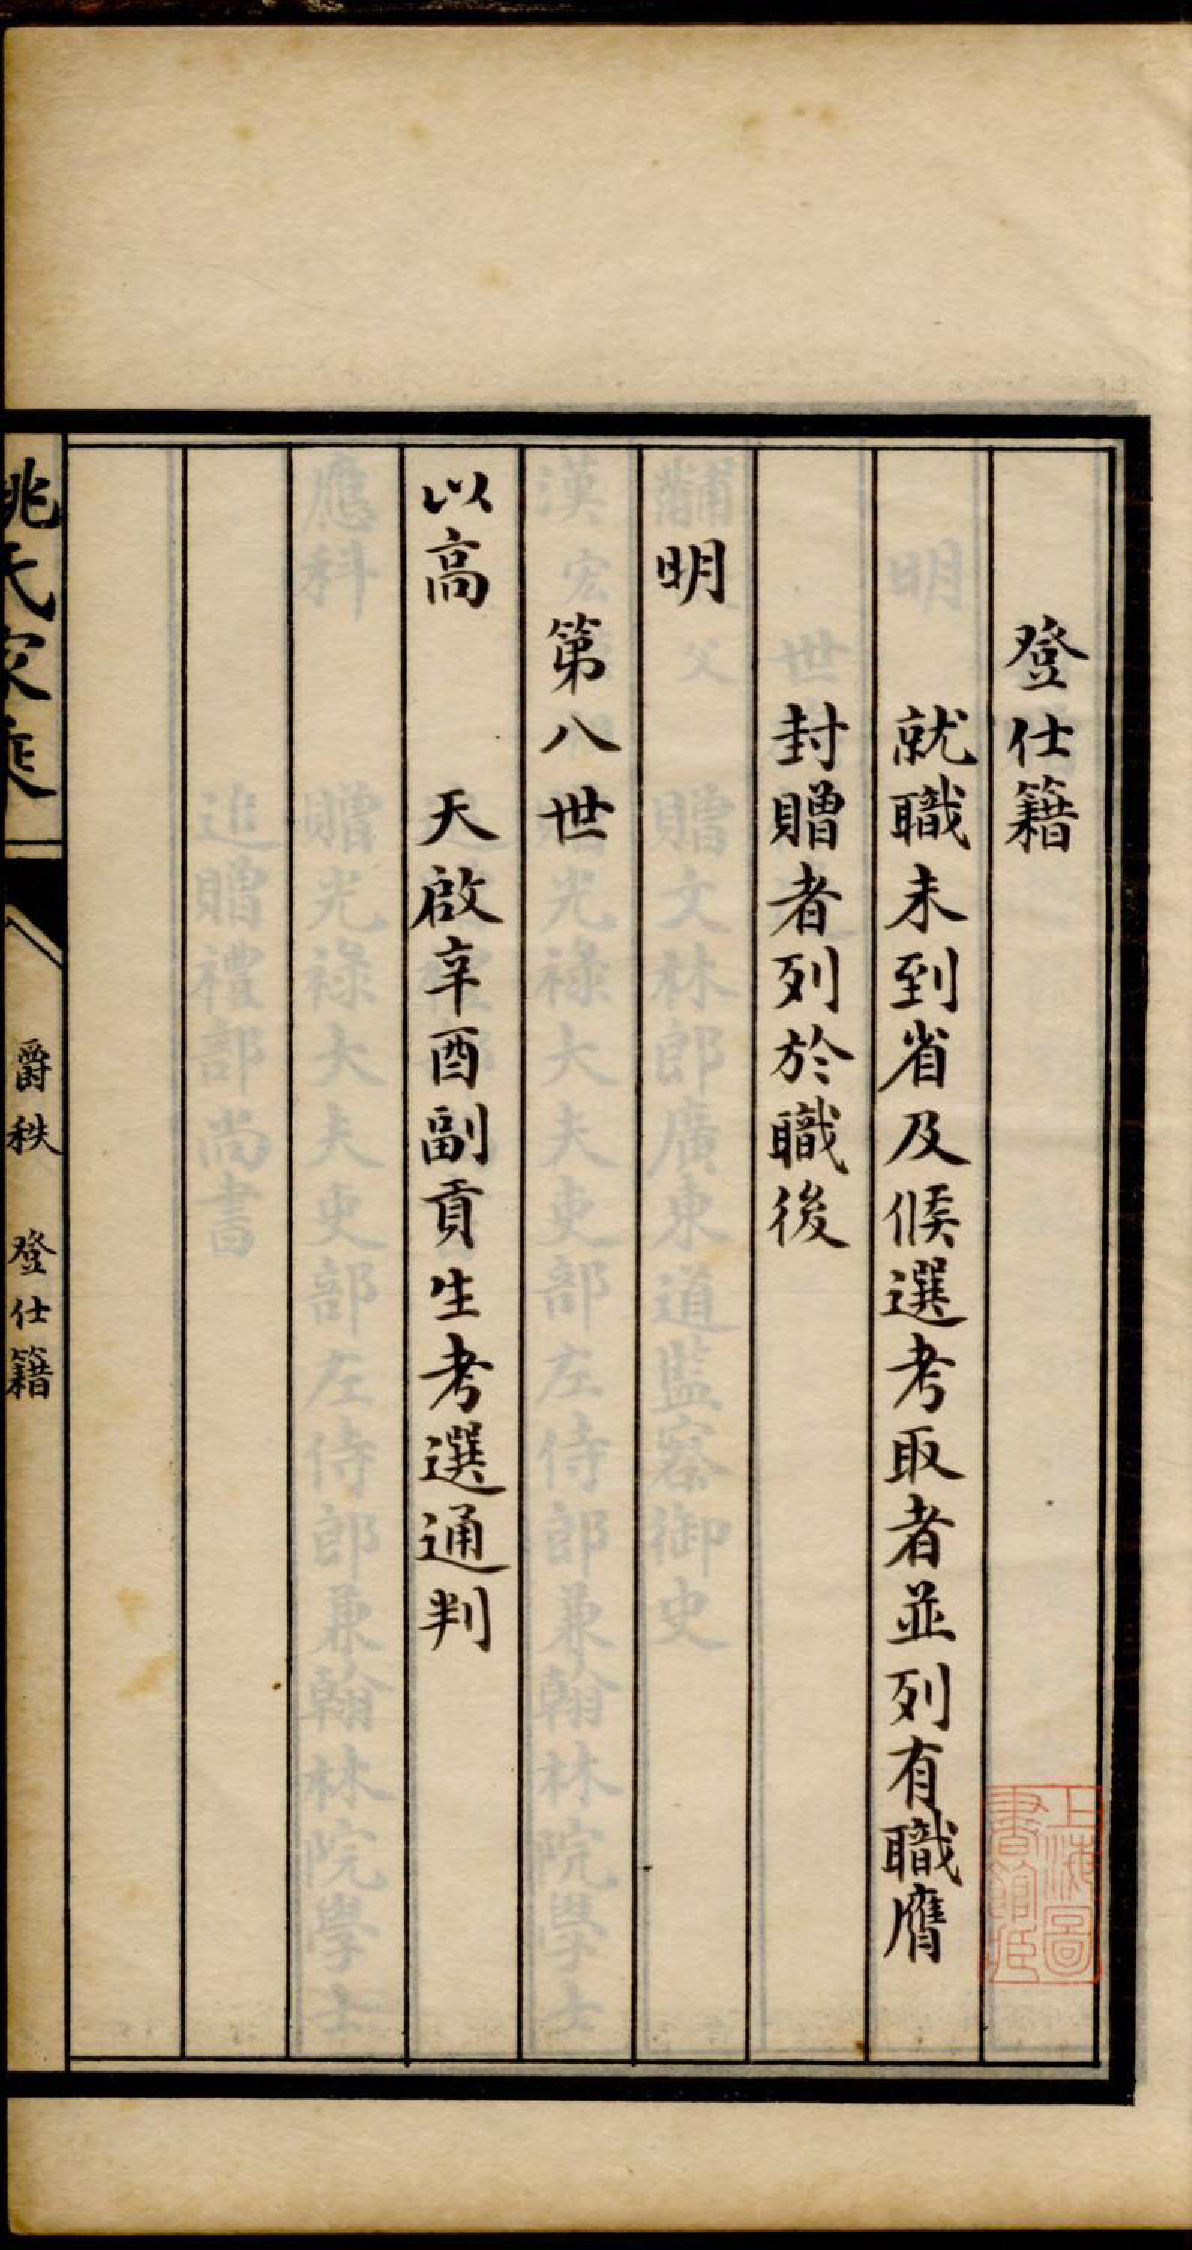 登仕籍
就職未到省及候選考取者並列有職膺
封贈者列於職後
明
第八世
以高 天啟辛酉副貢生考選通判
姚氏家乘
爵秩 登仕籍
上海圖書館藏